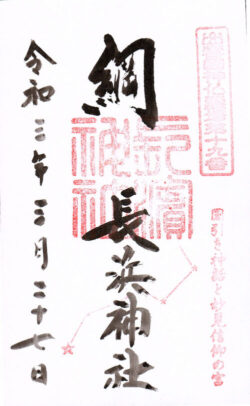 出雲國神仏霊場第十九番
國引き神話と妙見信仰の宮
綱
長濵神社
長浜神社
令和三年三月二十七日